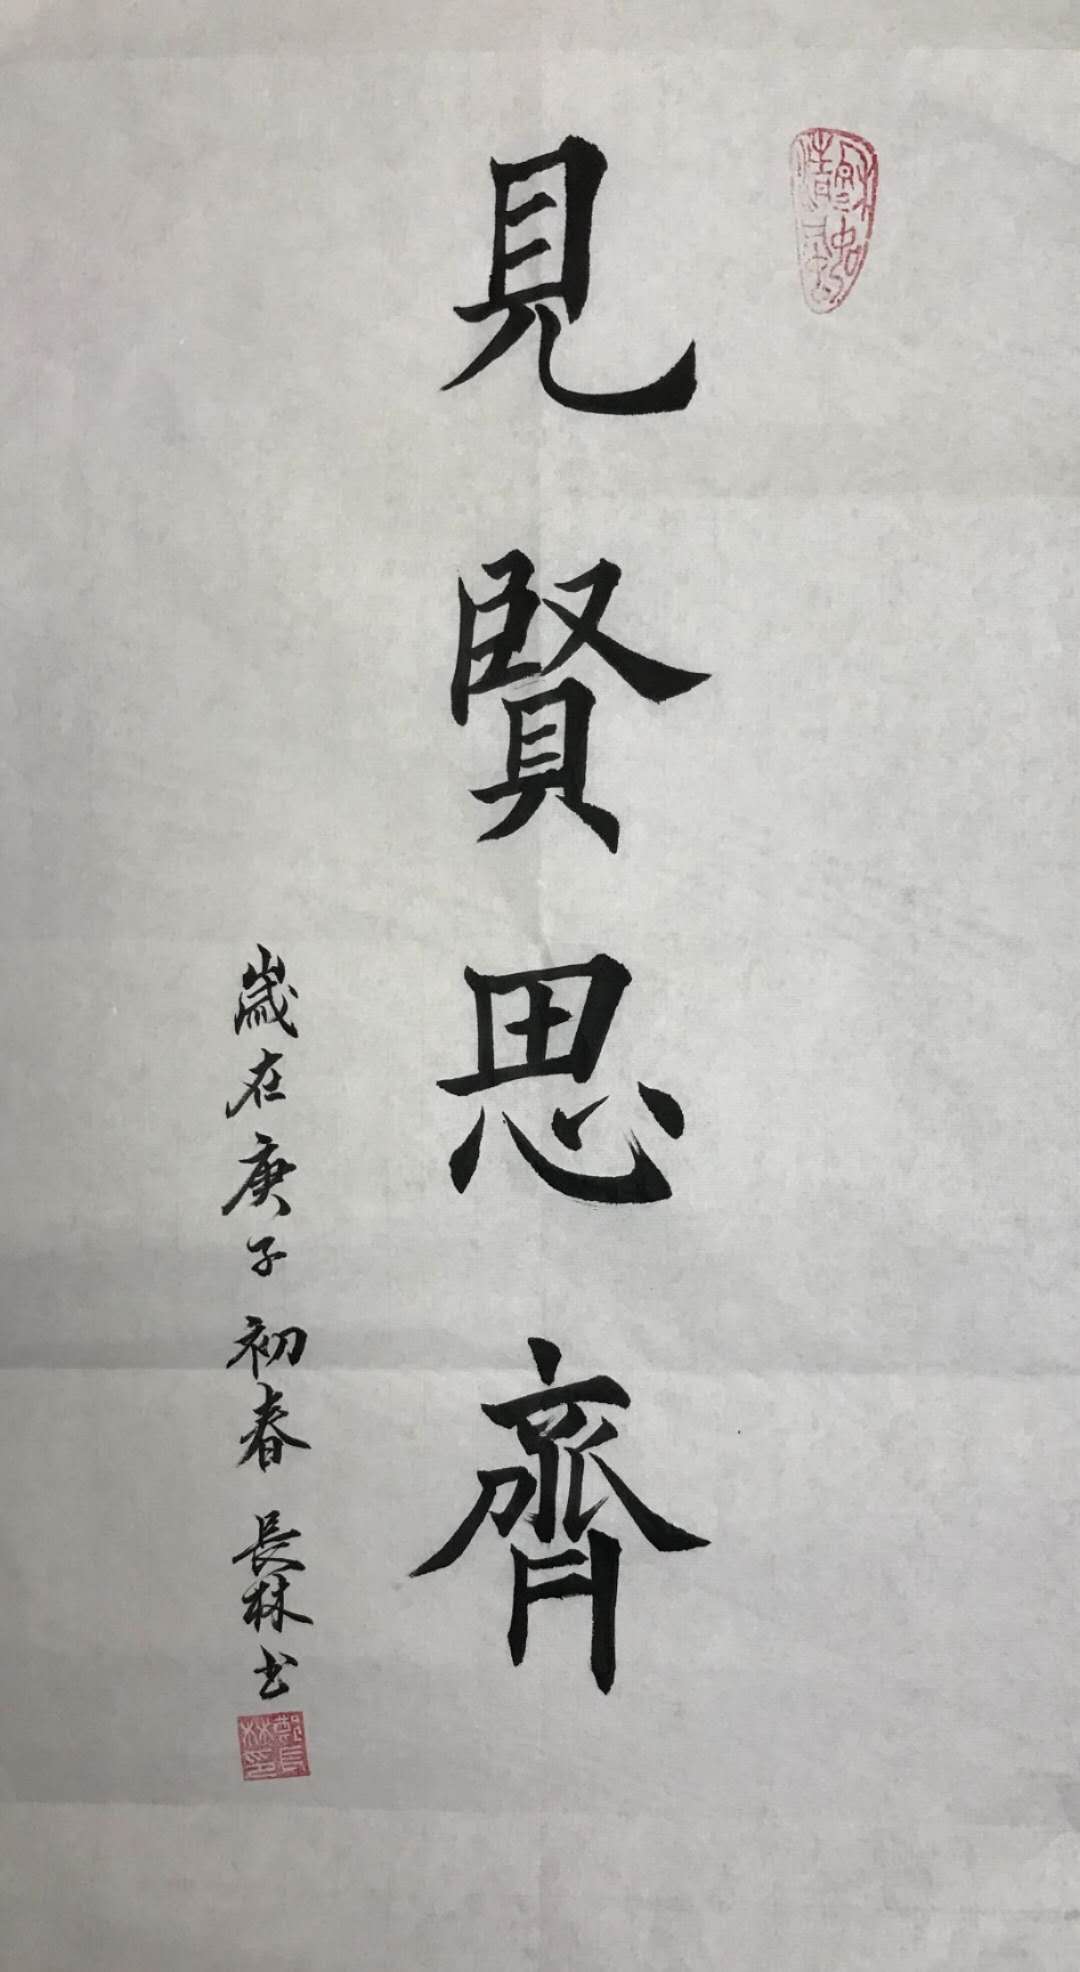 見賢思齊
歲在庚子初春 長林书